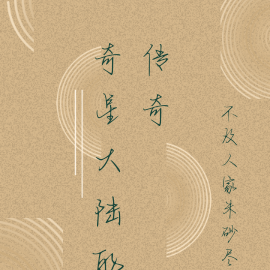 奇星大陆
传奇
不及人家朱砂尽